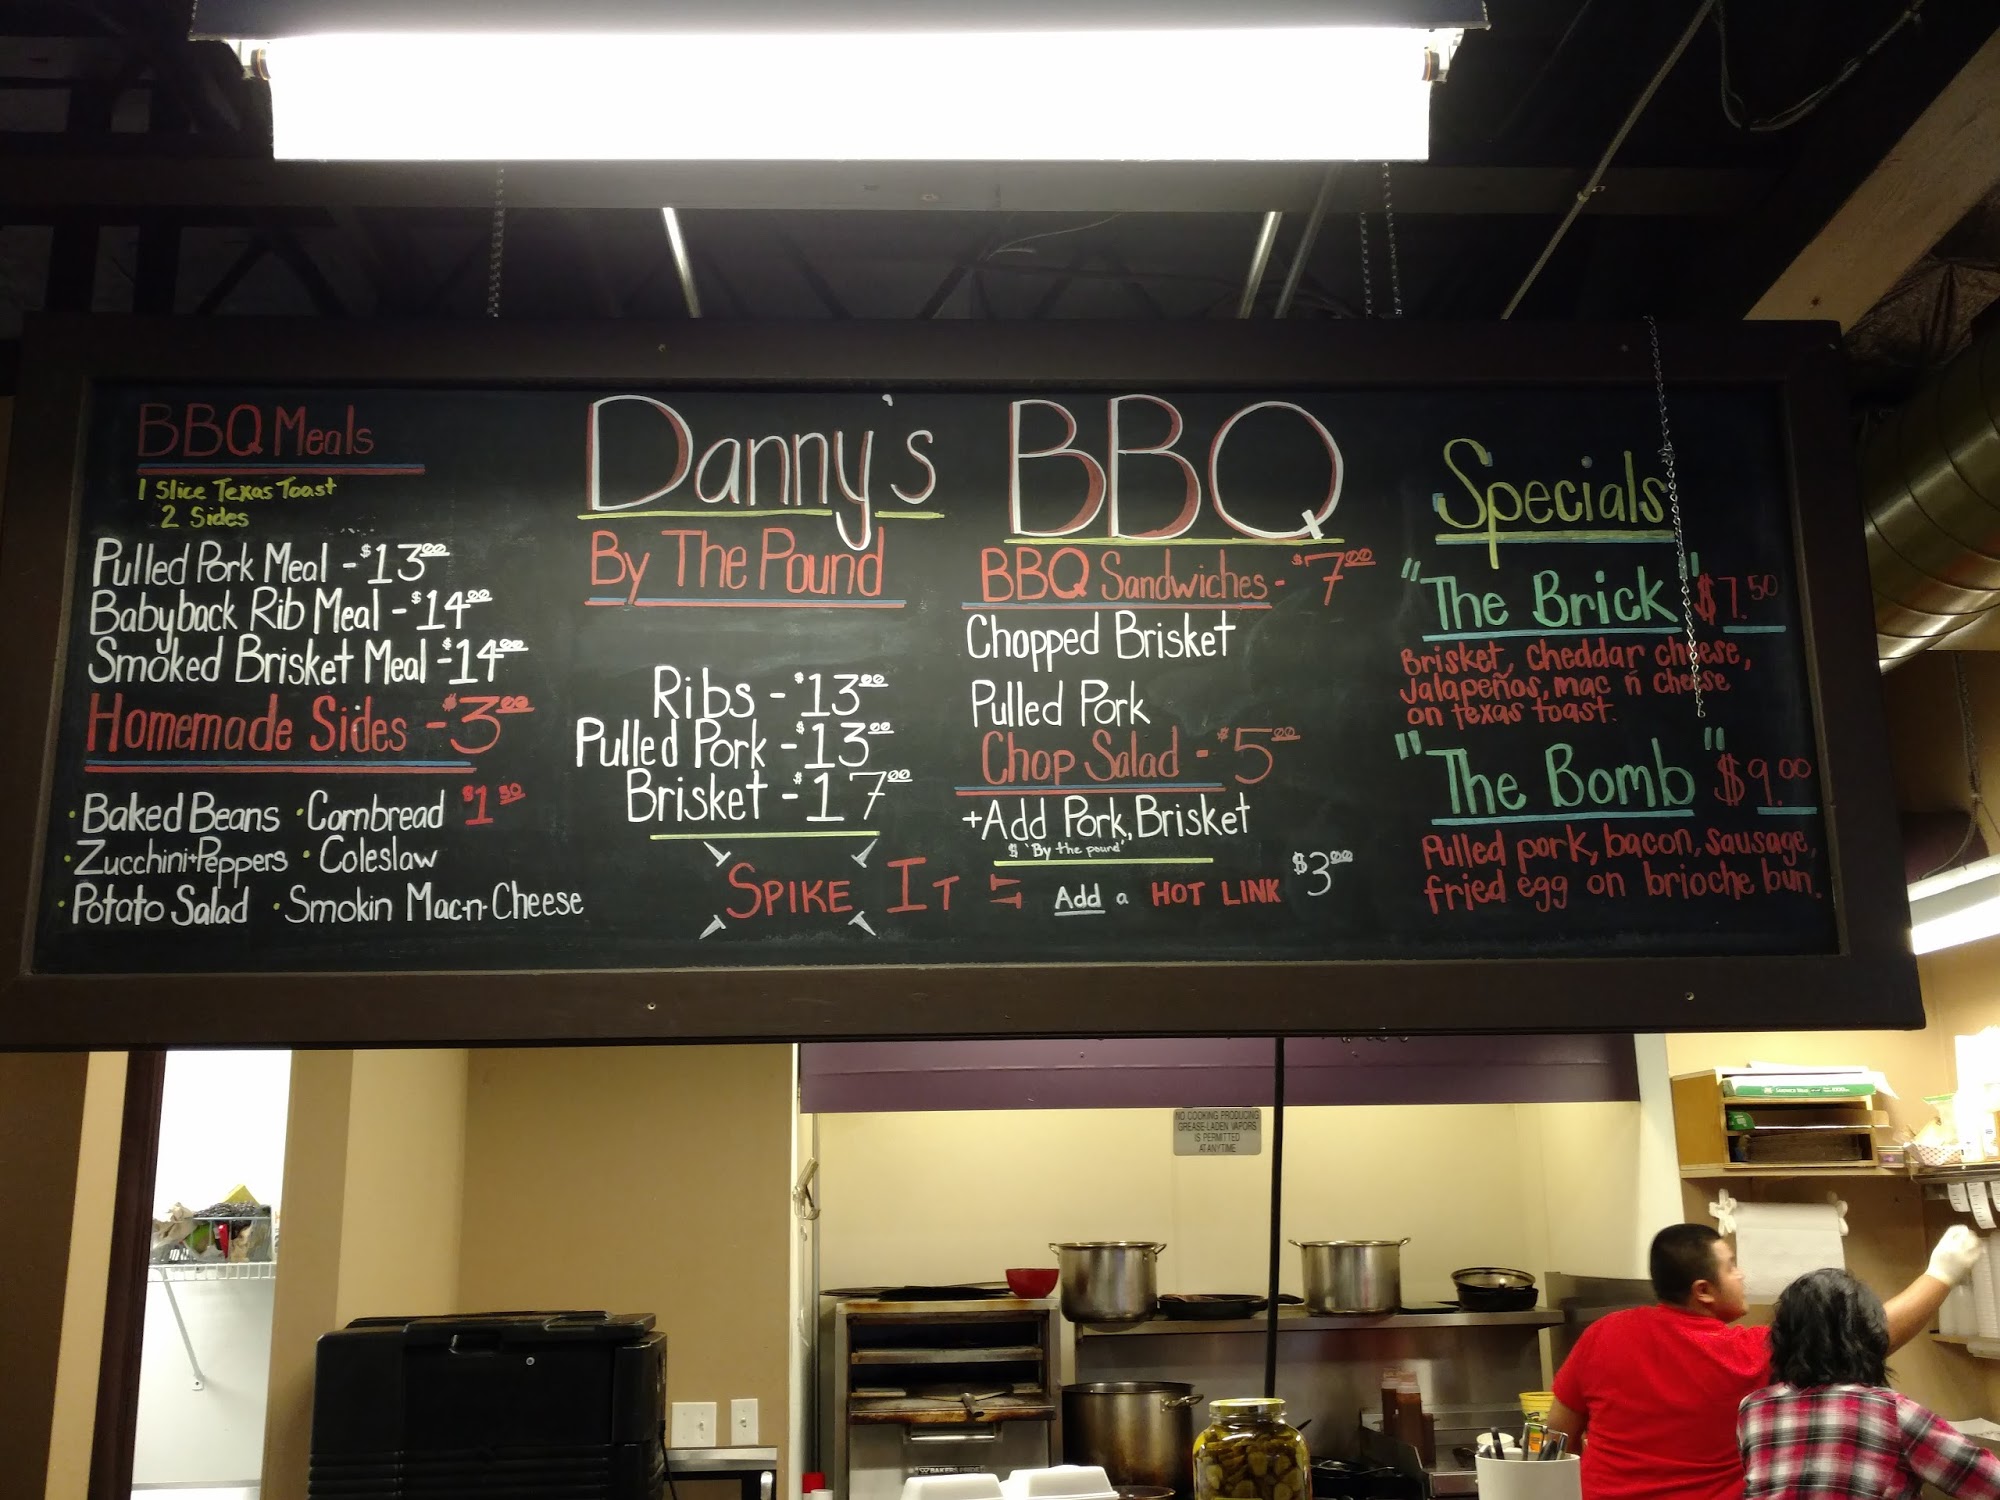 BBQ Meals
1 Slice Texas Toast
2 Sides
Pulled Pork Meal - $13.00
Babyback Rib Meal - $14.00
Smoked Brisket Meal - $14.00
Homemade Sides - $3.00
· Baked Beans · Cornbread $1.50
· Zucchini + Peppers · Coleslaw
· Potato Salad · Smokin Mac-n-Cheese
Danny's BBQ
By The Pound
Ribs - $13.00
Pulled Pork - $13.00
Brisket - $17.00
SPIKE IT
IT
BBQ Sandwiches - $7.00
Chopped Brisket
Pulled Pork
Chop Salad - $5.00
+Add Pork, Brisket
$ "By the pound"
Add a HOT LINK $3.00
Specials
"The Brick" $7.50
Brisket, cheddar cheese,
Jalapeños, mac ñ cheese
on texas toast.
"The Bomb" $9.00
Pulled pork, bacon, sausage,
fried egg on brioche bun.
NO COOKING PRODUCING
GREASE-LADEN VAPORS
IS PERMITTED
AT ANYTIME
BAKERS PRIDE